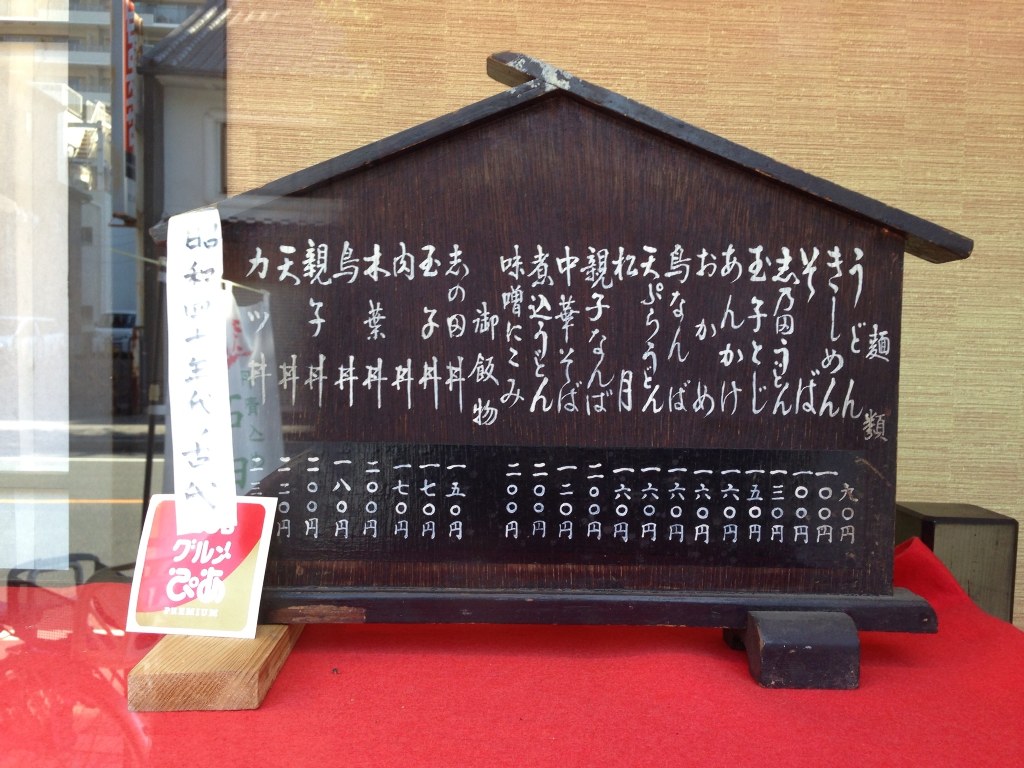 麺類
うどん 九〇円
きしめん 一〇〇円
そば 一〇〇円
志乃田うどん 一三〇円
玉子とじ 一五〇円
あんかけ 一六〇円
おかめ 一六〇円
鳥なんば 一六〇円
天ぷらうどん 一六〇円
松月 一六〇円
親子なんば 二〇〇円
中華そば 一二〇円
煮込うどん 二〇〇円
味噌にこみ 二〇〇円
御飯物
志の田丼 一五〇円
玉子丼 一七〇円
肉丼 一七〇円
木葉丼 二〇〇円
鳥丼 一八〇円
親子丼 二〇〇円
天丼 二二〇円
カツ丼 二三
昭和四十年代ノ古代
グルメ
ぴあ
PREMIUM